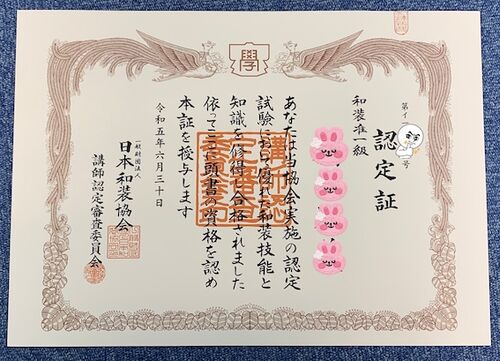 認定証
第イ
号
和装准一級
あなたは当協会実施の認定
試験において優れた和装技能と
知識を修得し合格されました
依ってここに頭書の資格を認め
本証を授与します
令和五年六月三十日
一般財団法人
日本和装協会
講師認定審査委員会
學